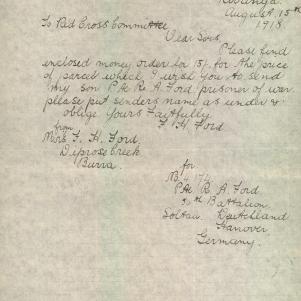 August 15th
1918.
To Red Cross Committee,
Dear Sirs,
Please find
enclosed money order for 15/- for the price
of parcel which I wish you to send
my son Pte R. A. Ford prisoner of war
please put senders name as under &
oblige yours Faithfully
F. H. Ford
from
Mrs F. H. Ford.
Diprose Creek
Burra.
for
Pte R A. Ford
Battalion
Soltau Deutchland
Hanover
Germany.